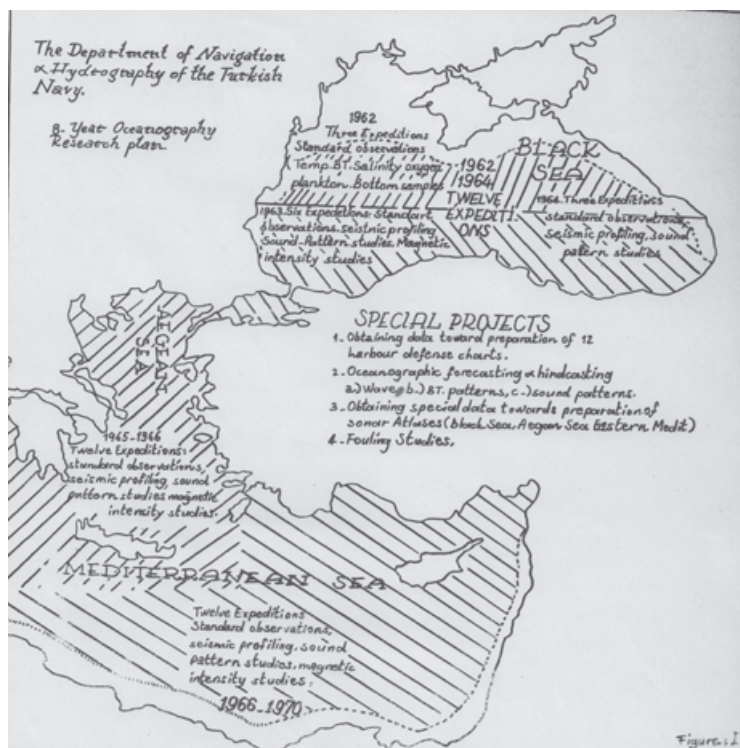 The Department of Navigation
& Hydrography of the Turkish
Navy.
8-Year Oceanography
Research plan.
1962
Three Expeditions
Standard observations
Temp. BT. Salinity oxygen
plankton. Bottom samples
1962
1964
TWELVE
EXPEDITI-
ONS
BLACK
SEA
1963. Six Expeditions. Standart
observations. seismic profiling
Sound-Pattern studies. Magnetic
intensity studies
1964. Three Expeditions
standard observations,
seismic profiling, sound
patern studies
AEGEAN
SEA
SPECIAL PROJECTS
1_ Obtaining data toward preparation of 12
harbour defense charts.
2_ Oceanographic forecasting & hindcasting
a.) Wave b.) BT. patterns, c.) sound patterns.
3_ Obtaining special data towards preparation of
sonar Atlases (Black Sea, Aegan Sea Eastern Medit)
4_ Fouling Studies.
1965-1966
Twelve Expeditions:
standard observations,
seismic profiling, sound
pattern studies magnetic
intensity studies.
MEDITERRANEAN SEA
Twelve Expeditions
Standard observations,
seismic profiling, sound
pattern studies, magnetic
intensity studies,
1966_1970
Figure: I